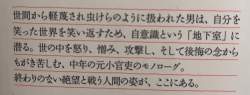 世間から軽蔑され虫けらのように扱われた男は、自分を
笑った世界を笑い返すため、自意識という「地下室」に
潜る。世の中を怒り、憎み、攻撃し、そして後悔の念から
もがき苦しむ、中年の元小官吏のモノローグ。
終わりのない絶望と戦う人間の姿が、ここにある。